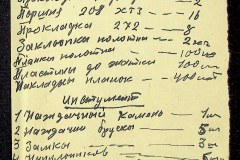 Поршня 208 х 73 — 16
Прокладка 272 — 8
Заклёпки полотна — 2 кот
Планки полотна — 100 шт
Пластины до жатки 100 шт
Накладки планок — 400 шт
Инструмент
1 Наждачный камень — 1 шт
2 Наждачн бруски — 5 шт
3 Замки — 3 шт
4 — 5 шт